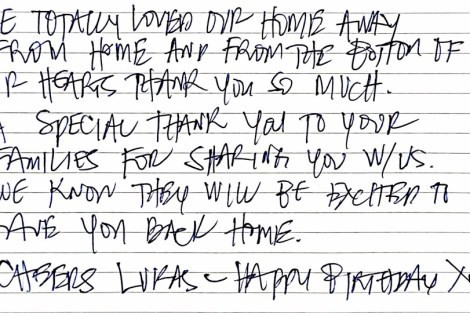 E TOTALLY LOVED OUR HOME AWAY
FROM HOME AND FROM THE BOTTOM OF
R HEARTS THANK YOU SO MUCH.
A SPECIAL THANK YOU TO YOUR
FAMILIES FOR SHARING YOU W/US.
WE KNOW THEY WILL BE EXCITED TO
HAVE YOU BACK HOME.
CHEERS LUKAS ~ HAPPY BIRTHDAY X